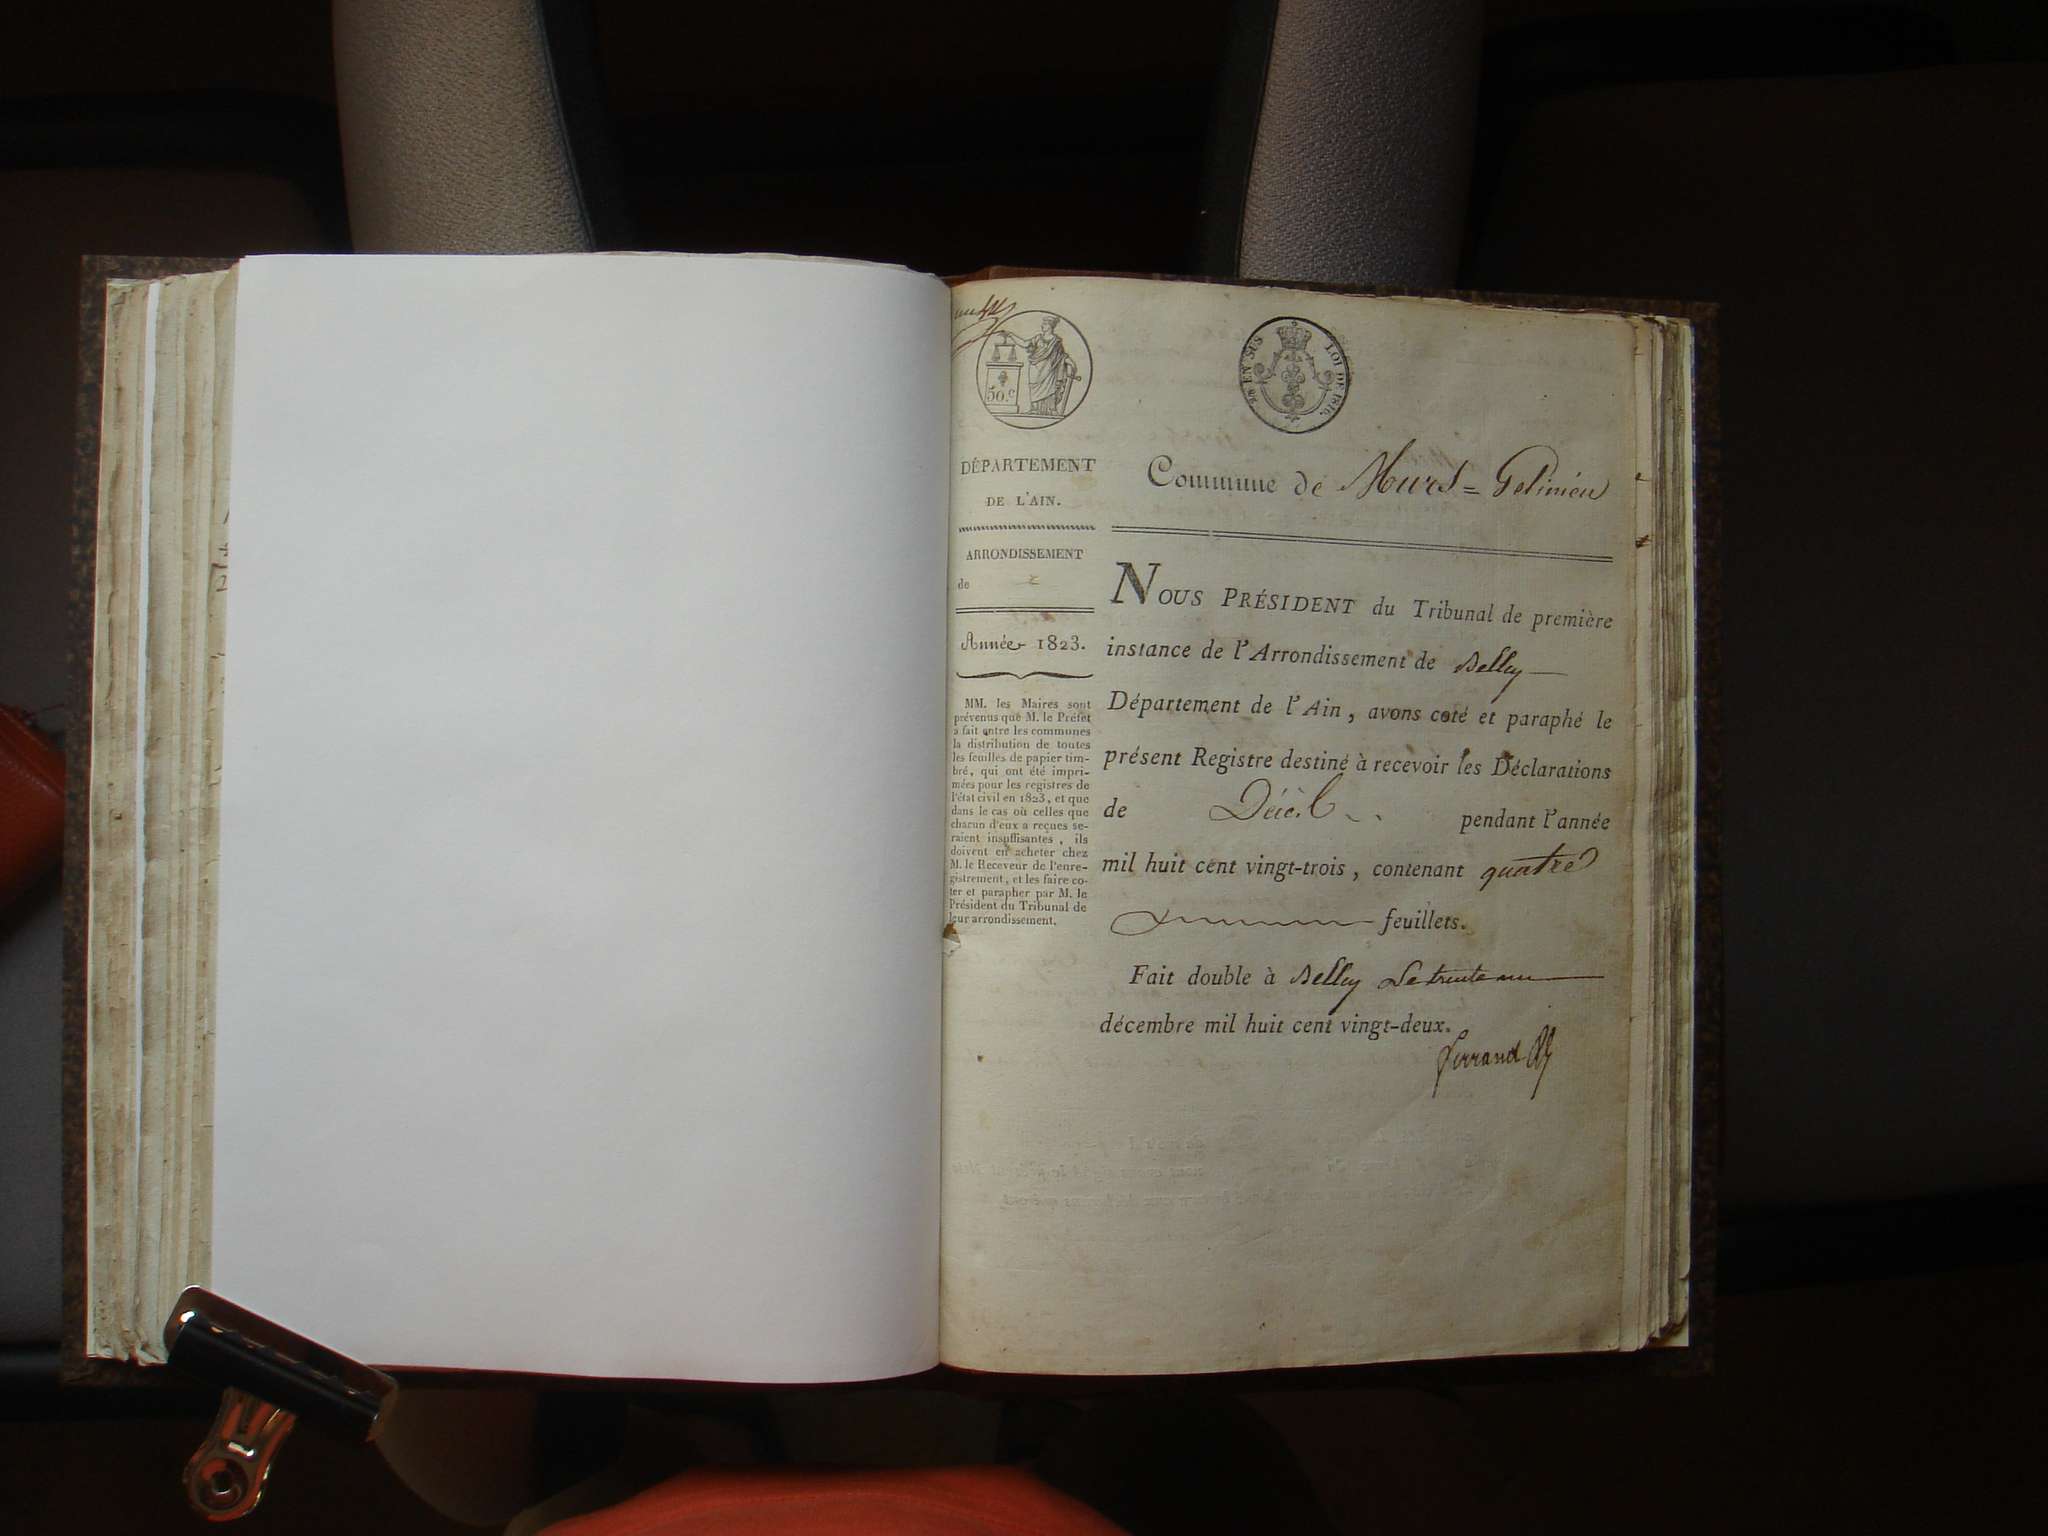 50.c
EN SUS
LOI DE 1816.
DÉPARTEMENT
DE L'AIN.
ARRONDISSEMENT
de
Année 1823.
MM. les Maires sont
prévenus que M. le Préfet
a fait entre les communes
la distribution de toutes
les feuilles de papier tim-
bré, qui ont été impri-
mées pour les registres de
l'état civil en 1823, et que
dans le cas où celles que
chacun d'eux a reçues se-
raient insuffisantes, ils
doivent en acheter chez
M. le Receveur de l'enre-
gistrement, et les faire co-
ter et parapher par M. le
Président du Tribunal de
leur arrondissement.
Commune de Murs = Gelinieu
NOUS PRÉSIDENT du Tribunal de première
instance de l'Arrondissement de Belley
Département de l'Ain, avons coté et paraphé le
présent Registre destiné à recevoir les Déclarations
de Décès pendant l'année
mil huit cent vingt-trois, contenant quatre
feuillets.
Fait double à Belley Le trente un
décembre mil huit cent vingt-deux.
Ferrand